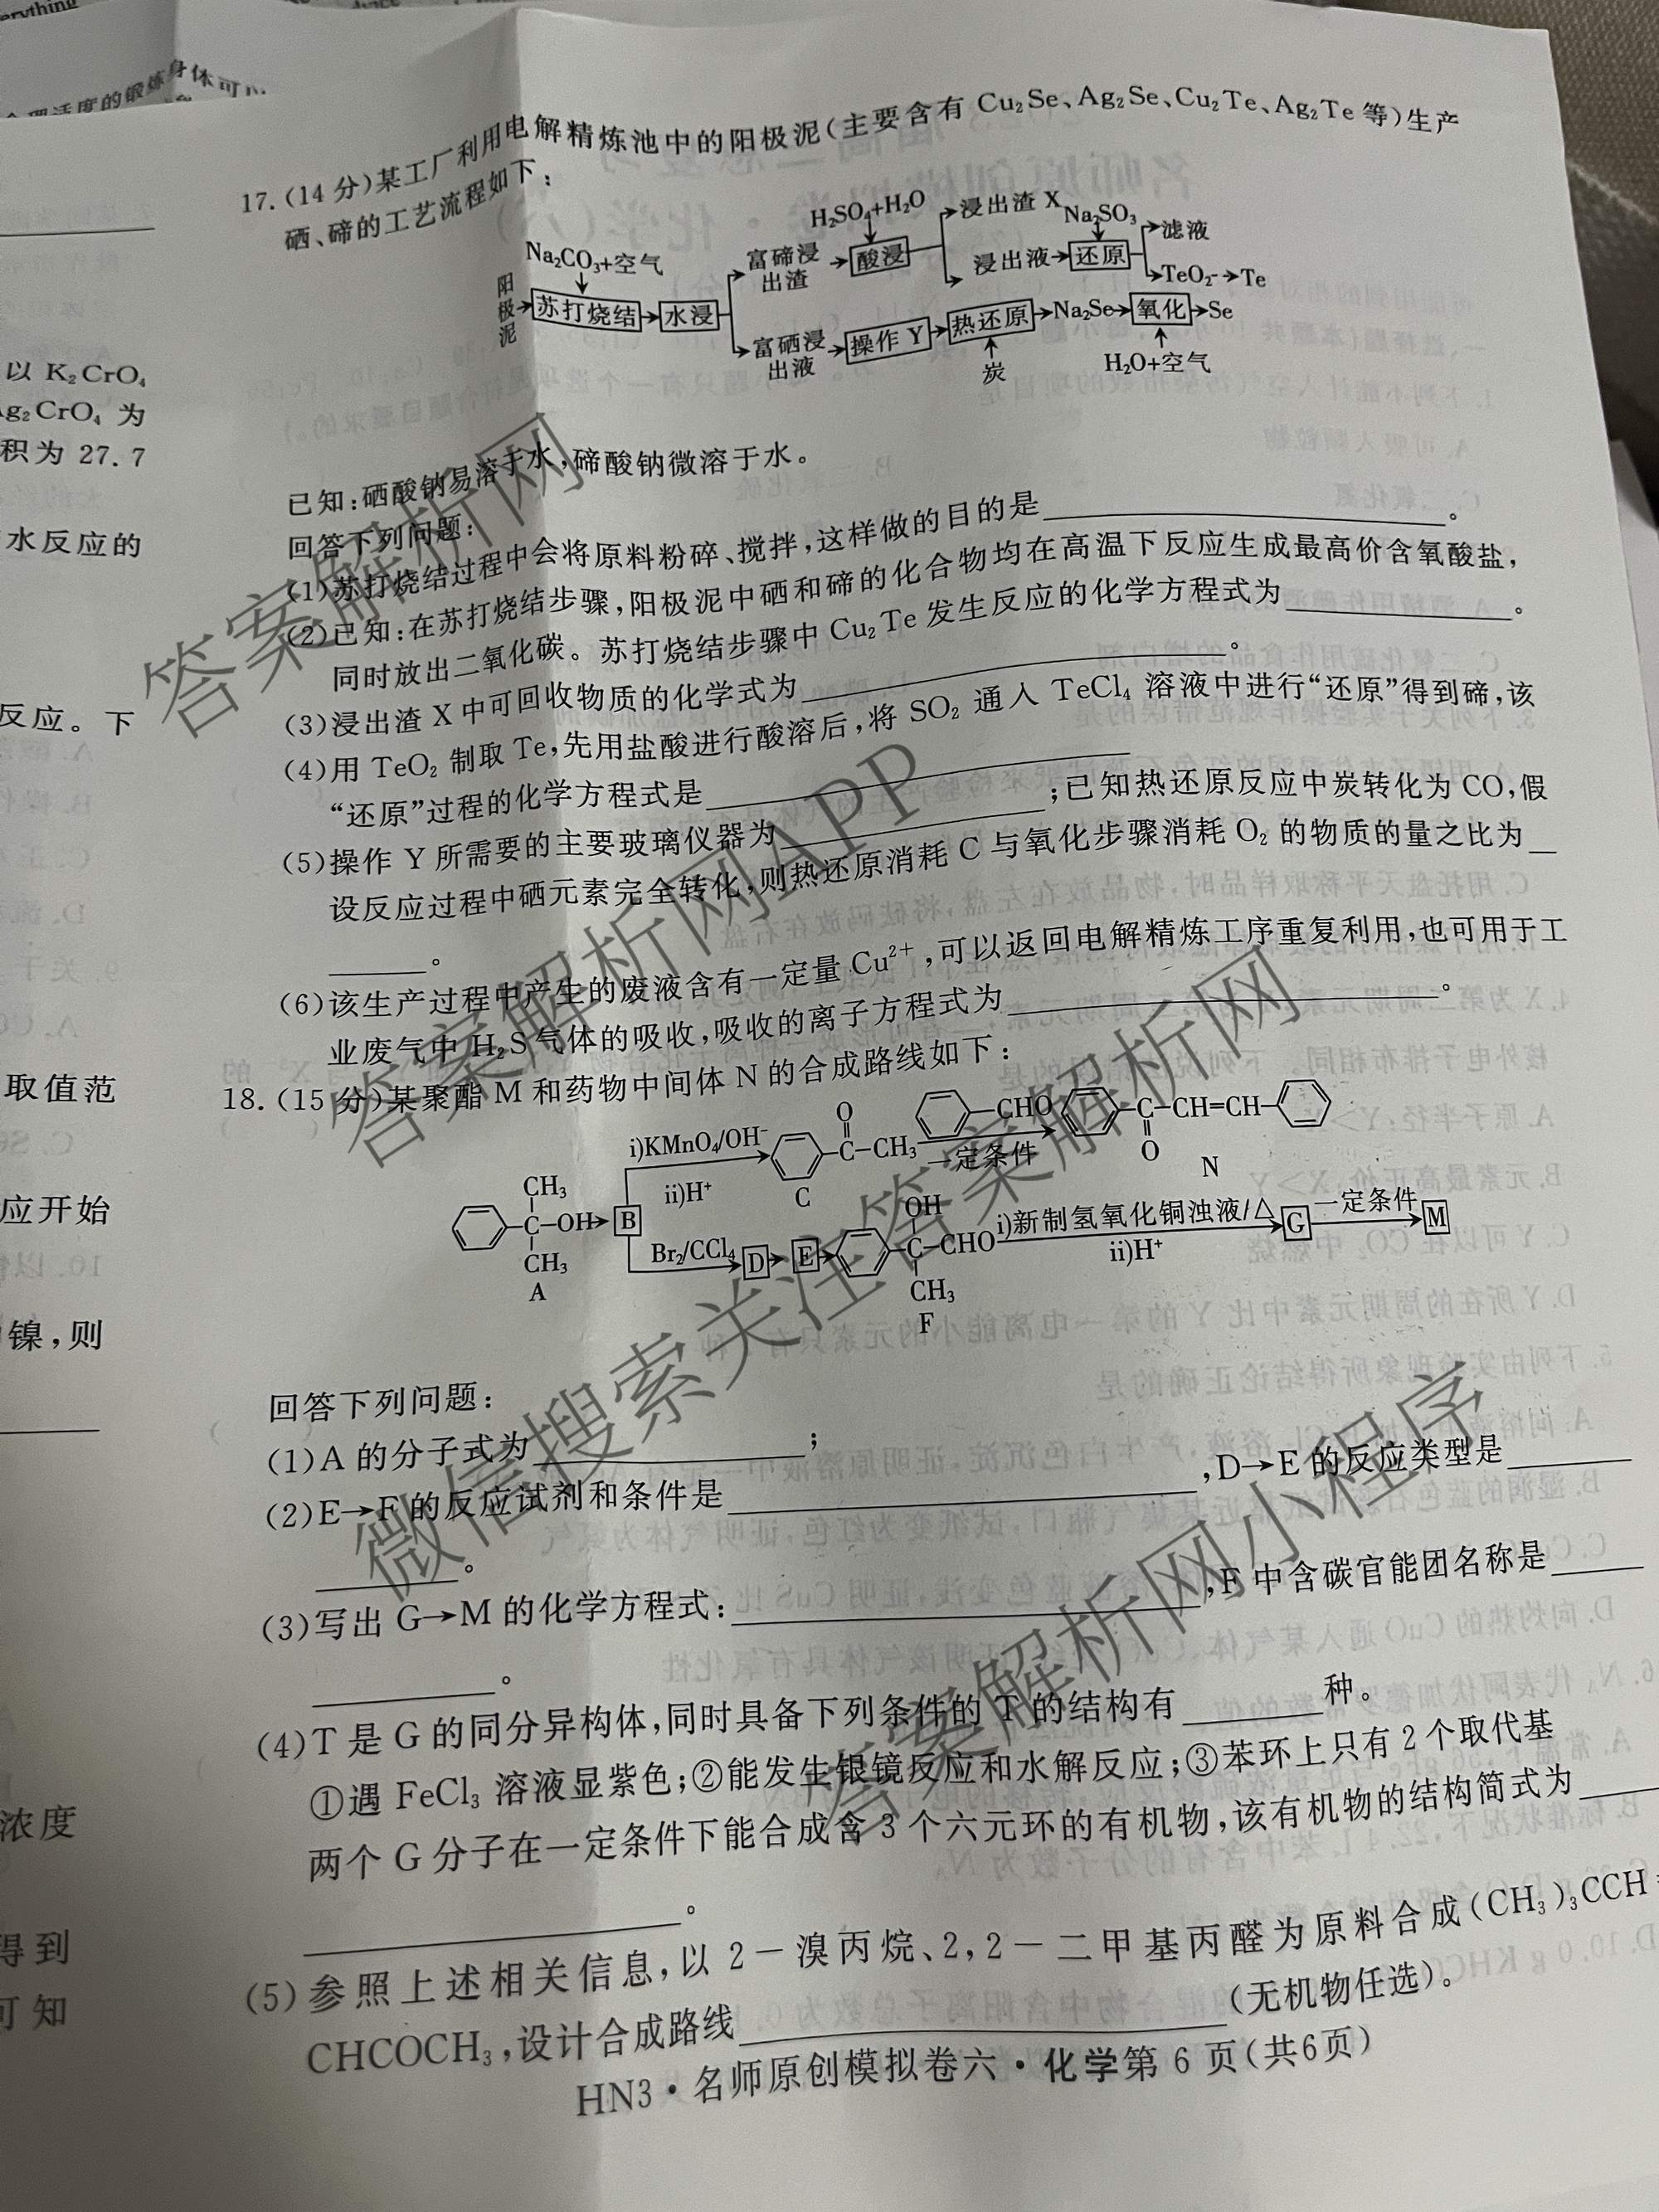 erything
合理适度的锻炼身体可
以 K₂CrO₄
Ag₂CrO₄ 为
积为 27.7
水反应的
反应。下
取值范
应开始
镍,则
浓度
得到
可知
17.(14 分)某工厂利用电解精炼池中的阳极泥(主要含有 Cu₂Se、Ag₂Se、Cu₂Te、Ag₂Te 等)生产
硒、碲的工艺流程如下:
H₂SO₄+H₂O
浸出渣 X
Na₂SO₃
滤液
Na₂CO₃+空气
富碲浸出渣
酸浸
浸出液
还原
TeO₂→Te
阳极泥
苏打烧结
水浸
富硒浸出液
操作 Y
热还原
Na₂Se
氧化
Se
炭
H₂O+空气
已知:硒酸钠易溶于水,碲酸钠微溶于水。
回答下列问题:
(1)苏打烧结过程中会将原料粉碎、搅拌,这样做的目的是________。
(2)已知:在苏打烧结步骤,阳极泥中硒和碲的化合物均在高温下反应生成最高价含氧酸盐,
同时放出二氧化碳。苏打烧结步骤中 Cu₂Te 发生反应的化学方程式为________。
(3)浸出渣 X 中可回收物质的化学式为________。
(4)用 TeO₂ 制取 Te,先用盐酸进行酸溶后,将 SO₂ 通入 TeCl₄ 溶液中进行“还原”得到碲,该
“还原”过程的化学方程式是________
(5)操作 Y 所需要的主要玻璃仪器为________;已知热还原反应中炭转化为 CO,假
设反应过程中硒元素完全转化,则热还原消耗 C 与氧化步骤消耗 O₂ 的物质的量之比为__
____。
(6)该生产过程中产生的废液含有一定量 Cu²⁺,可以返回电解精炼工序重复利用,也可用于工
业废气中 H₂S 气体的吸收,吸收的离子方程式为________。
18.(15 分)某聚酯 M 和药物中间体 N 的合成路线如下:
i)KMnO₄/OH⁻
ii)H⁺
O
C—CH₃
C
CHO
一定条件
C—CH=CH
O
N
CH₃
C—OH
CH₃
A
B
Br₂/CCl₄
D
E
OH
C—CHO
CH₃
F
i)新制氢氧化铜浊液/△
ii)H⁺
G
一定条件
M
回答下列问题:
(1)A 的分子式为________;
(2)E→F 的反应试剂和条件是________,D→E 的反应类型是____
____。
(3)写出 G→M 的化学方程式:________,F 中含碳官能团名称是____
____。
(4)T 是 G 的同分异构体,同时具备下列条件的 T 的结构有____种。
①遇 FeCl₃ 溶液显紫色;②能发生银镜反应和水解反应;③苯环上只有 2 个取代基
两个 G 分子在一定条件下能合成含 3 个六元环的有机物,该有机物的结构简式为____
________。
(5)参照上述相关信息,以 2-溴丙烷、2,2-二甲基丙醛为原料合成(CH₃)₃CCH=
CHCOCH₃,设计合成路线________(无机物任选)。
HN3·名师原创模拟卷六·化学第 6 页(共6页)
答案解析网
答案解析网APP
微信搜索关注答案解析网
答案解析网小程序